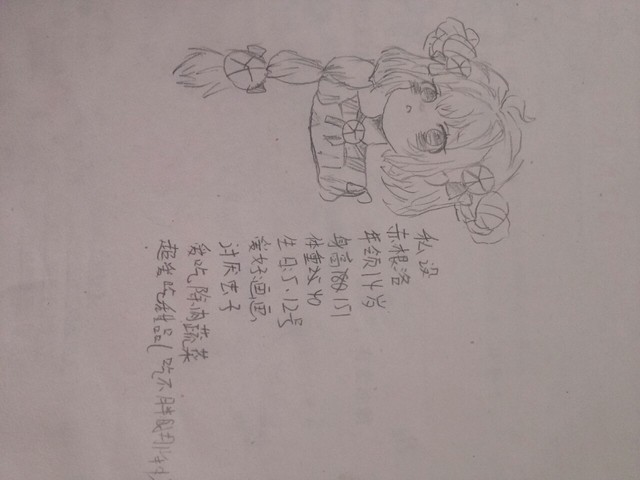 私设
赤根洛
年领14岁
身高151
体重40
生日:5.12号
爱好画画
讨厌虫子
爱吃 蔬菜
超爱吃甜品(吃不胖